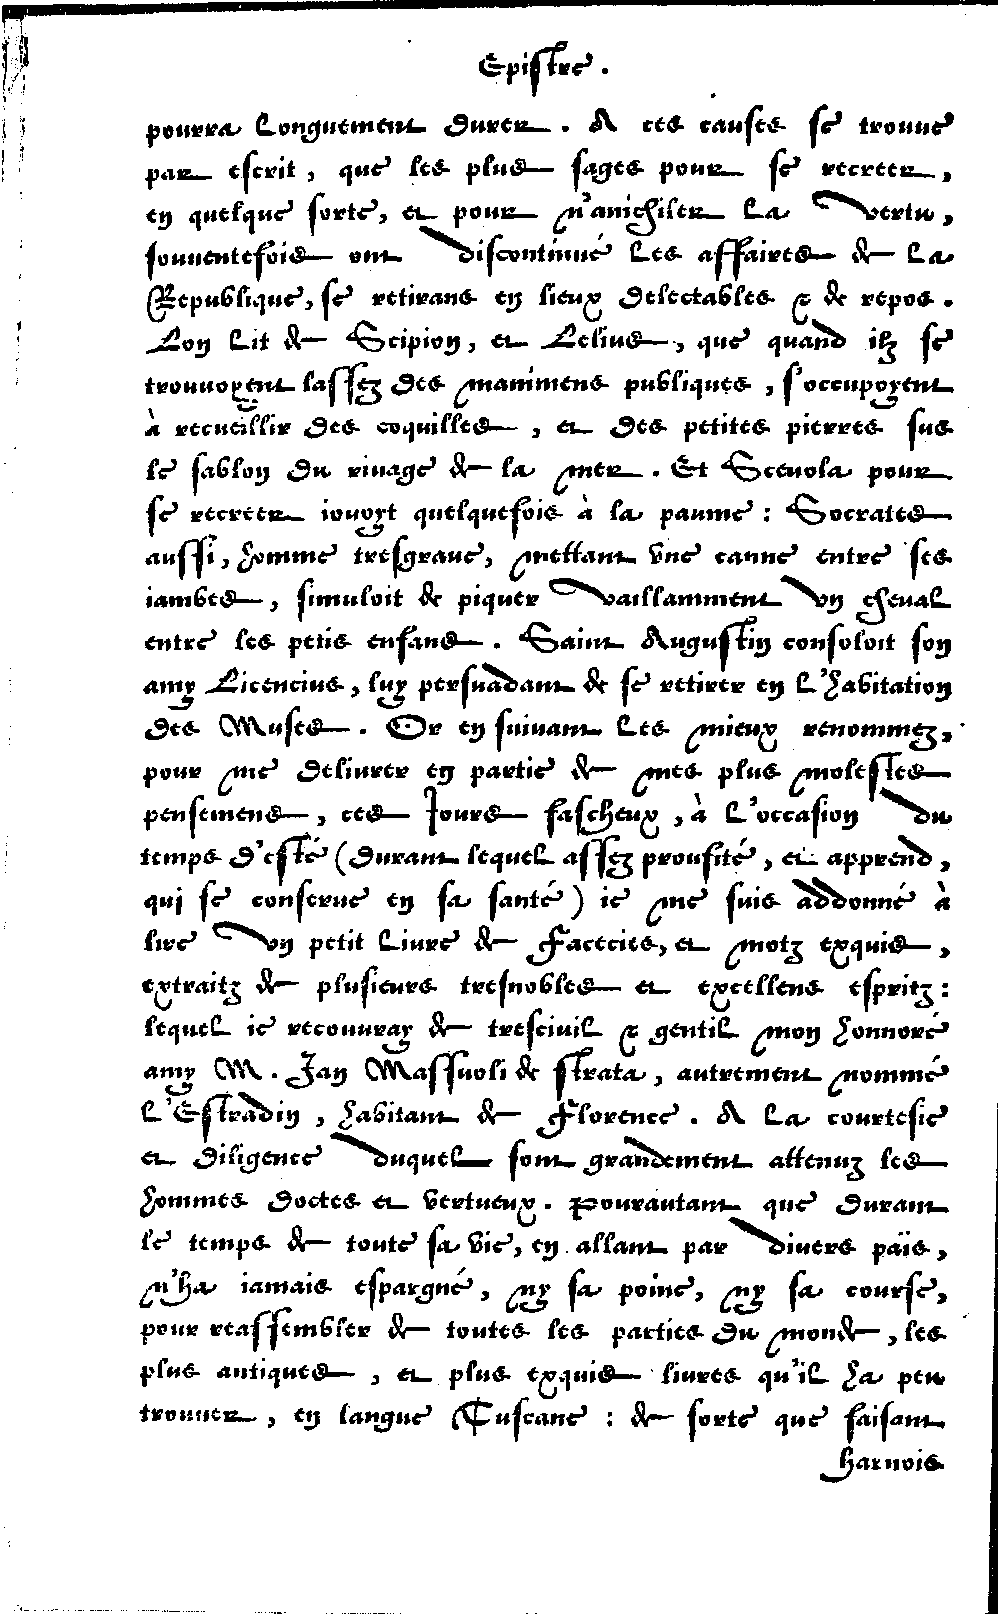 Epistre.
pourra longuement durer. A ces causes se trouue
par escrit, que les plus sages pour se recreer,
en quelque sorte, et pour n'anichiler la vertu,
souuentefois ont discontinué les affaires de la
Republique, se retirans en lieux delectables & de repos.
Lon lit de Scipion, et Lelius, que quand ilz se
trouuoyent lassez des manimens publiques, s'occupoyent
à recueillir des coquilles, et des petites pierres sus
le sablon du riuage de la mer. Et Sceuola pour
se recreer iouoyt quelquefois à la paume: Socrates
aussi, homme tresgraue, mettant vne canne entre ses
iambes, simuloit de piquer vaillamment vn cheual
entre les petis enfans. Saint Augustin consoloit son
amy Licencius, luy persuadant de se retirer en l'habitation
des Muses. Or en suiuant les mieux renommez,
pour me deliurer en partie de mes plus molestes
pensemens, ces Iours fascheux, à l'occasion du
temps d'esté (durant lequel assez proufité, et apprend,
qui se conserue en sa santé) ie me suis addonné à
lire vn petit Liure de Facecies, et motz exquis,
extraitz de plusieurs tresnobles et excellens espritz:
lequel ie recouuray de tresciuil & gentil mon honnoré
amy M. Jan Massuoli de strata, autrement nommé
l'Estradin, habitant de Florence. A la courtesie
et diligence duquel sont grandement attenuz les
hommes doctes et vertueux. Pourautant que durant
le temps de toute sa vie, en allant par diuers païs,
n'ha iamais espargné, ny sa peine, ny sa course,
pour reassembler de toutes les parties du monde, les
plus antiques, et plus exquis liures qu'il ha peu
trouuer, en langue Tuscane: de sorte que faisant
harnois